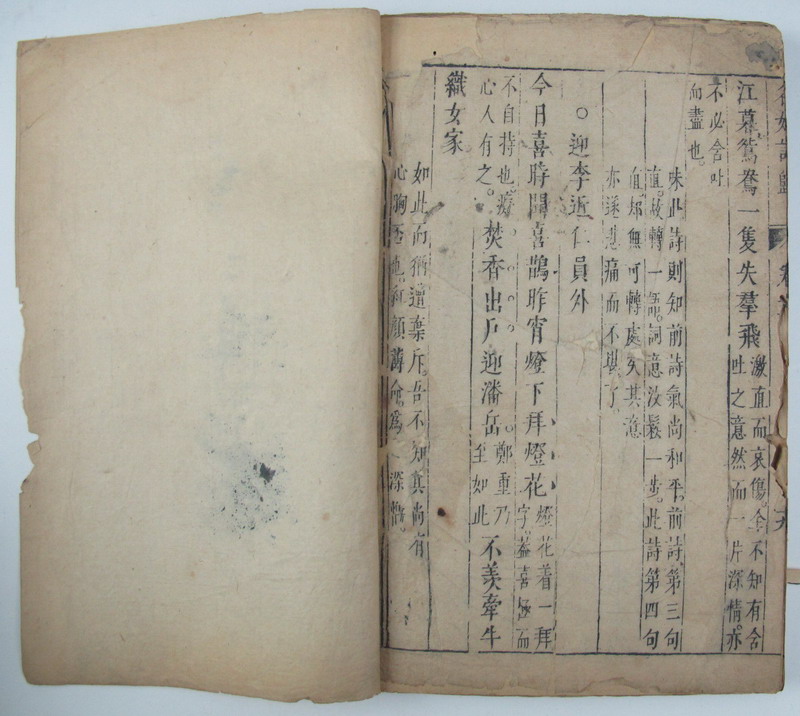 江暮鴛鴦一隻失羣飛
激直而哀傷。全不知有含
吐之意然而一片深情。亦
不必含吐
而盡也。
味此詩則知前詩氣尚和平。前詩第三句
直。故轉一語。詞意汝鬆一步。此詩第四句
直。却無可轉處矣其意
亦遂悲痛而不堪了。
○迎李近仁員外
今日喜時聞喜鵲昨宵燈下拜燈花
燈花着一拜
字蓋喜極而
不自持也。癡
心人有之。
焚香出戶迎潘岳
鄭重乃
至如此
不羨牽牛
織女家
如此而猶遭棄斥。吾不知其尚有
心胸否也。紅顏薄命。為 深慨。